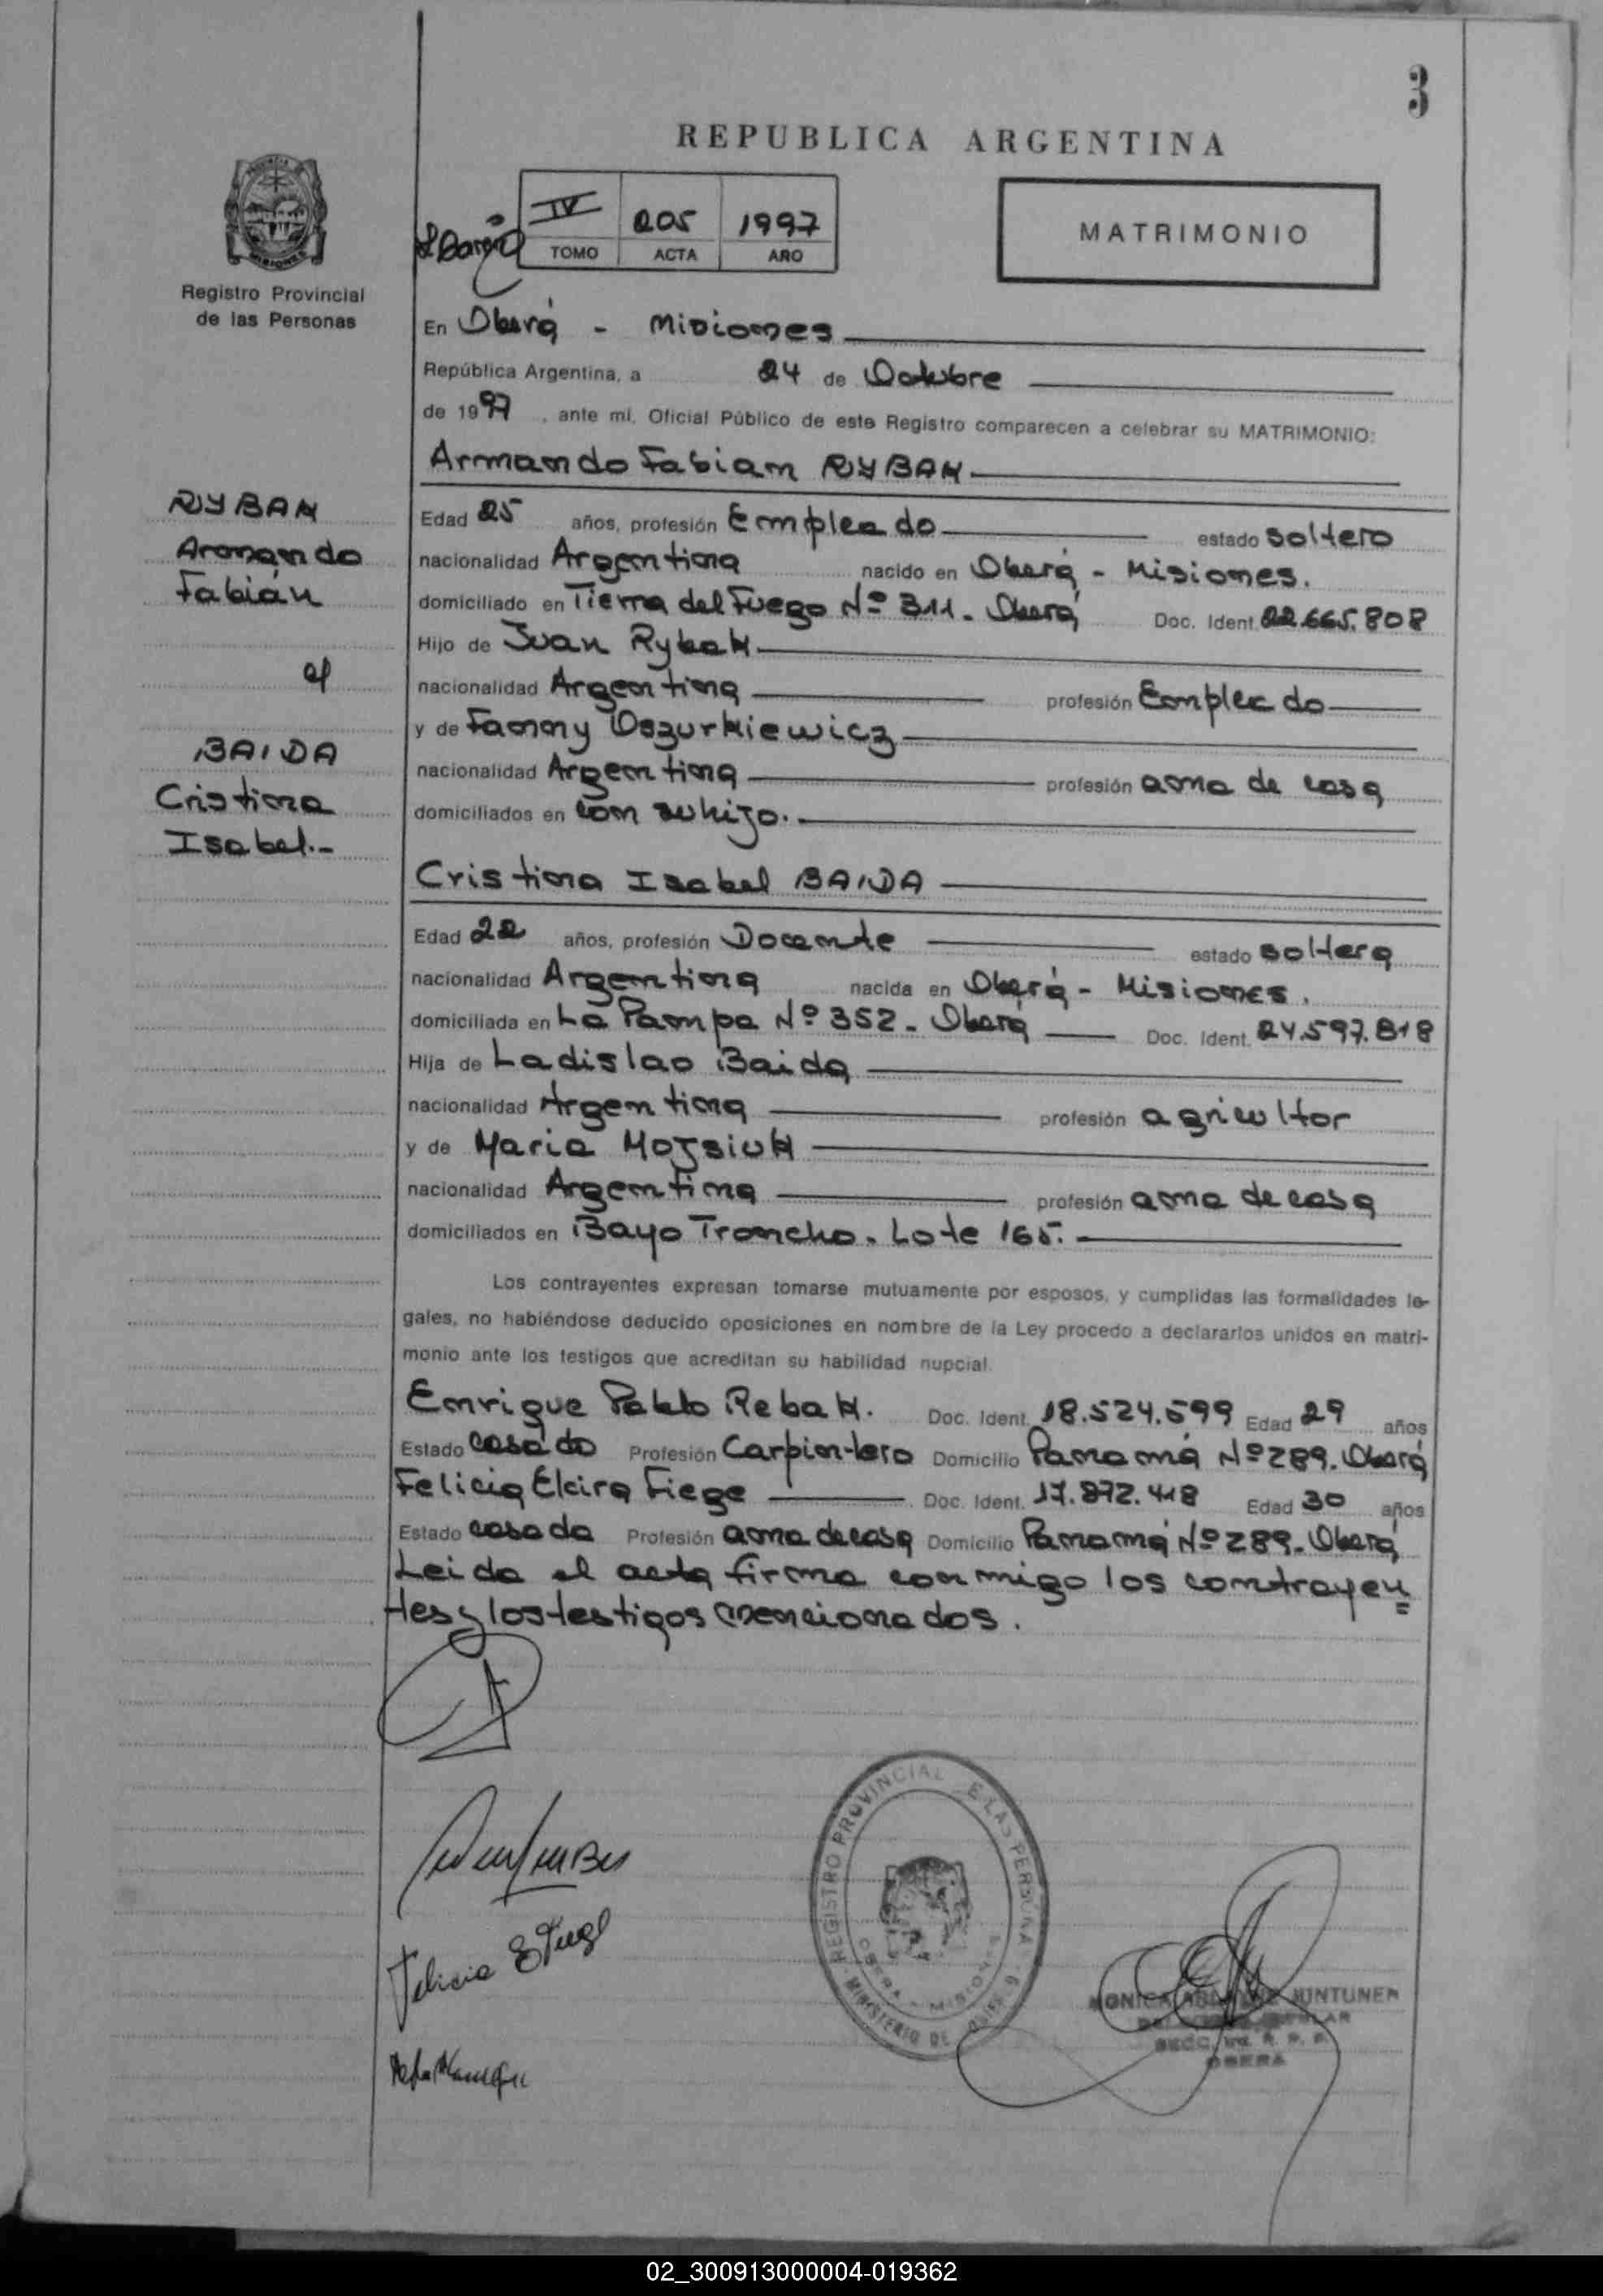 3
REPUBLICA ARGENTINA
IV 205 1997
TOMO ACTA AÑO
MATRIMONIO
Registro Provincial
de las Personas
En Oberá - Misiones
República Argentina, a 24 de Octubre
de 1997, ante mí, Oficial Público de este Registro comparecen a celebrar su MATRIMONIO:
Armando Fabian RYBAK
RYBAK
Armando
Fabián
c/
BAIDA
Cristina
Isabel.-
Edad 25 años, profesión Empleado estado soltero
nacionalidad Argentina nacido en Oberá - Misiones.
domiciliado en Tierra del Fuego Nº 311. Oberá Doc. Ident. 22.665.808
Hijo de Juan Rybak
nacionalidad Argentina profesión Empleado
y de Fanny Oszurkiewicz
nacionalidad Argentina profesión ama de casa
domiciliados en con su hijo.
Cristina Isabel BAIDA
Edad 22 años, profesión Docente estado soltera
nacionalidad Argentina nacida en Oberá - Misiones.
domiciliada en La Pampa Nº 352. Oberá Doc. Ident. 24.597.818
Hija de Ladislao Baida
nacionalidad Argentina profesión agricultor
y de Maria Mojsiuk
nacionalidad Argentina profesión ama de casa
domiciliados en Bayo Troncho. Lote 165.
Los contrayentes expresan tomarse mutuamente por esposos, y cumplidas las formalidades le-
gales, no habiéndose deducido oposiciones en nombre de la Ley procedo a declararlos unidos en matri-
monio ante los testigos que acreditan su habilidad nupcial.
Enrique Pablo Rebak. Doc. Ident. 18.524.599 Edad 29 años
Estado casado Profesión Carpintero Domicilio Panamá Nº 289. Oberá
Felicia Elcira Fiege Doc. Ident. 17.872.418 Edad 30 años
Estado casada Profesión ama de casa Domicilio Panamá Nº 289. Oberá
Leida el acta firma conmigo los contrayen
tes y los testigos mencionados.
Felicia E
REGISTRO PROVINCIAL DE LAS PERSONAS
OBERA - MISIONES
MINISTERIO DE
MONICA JUNTUNEN
OBERA
02_300913000004-019362